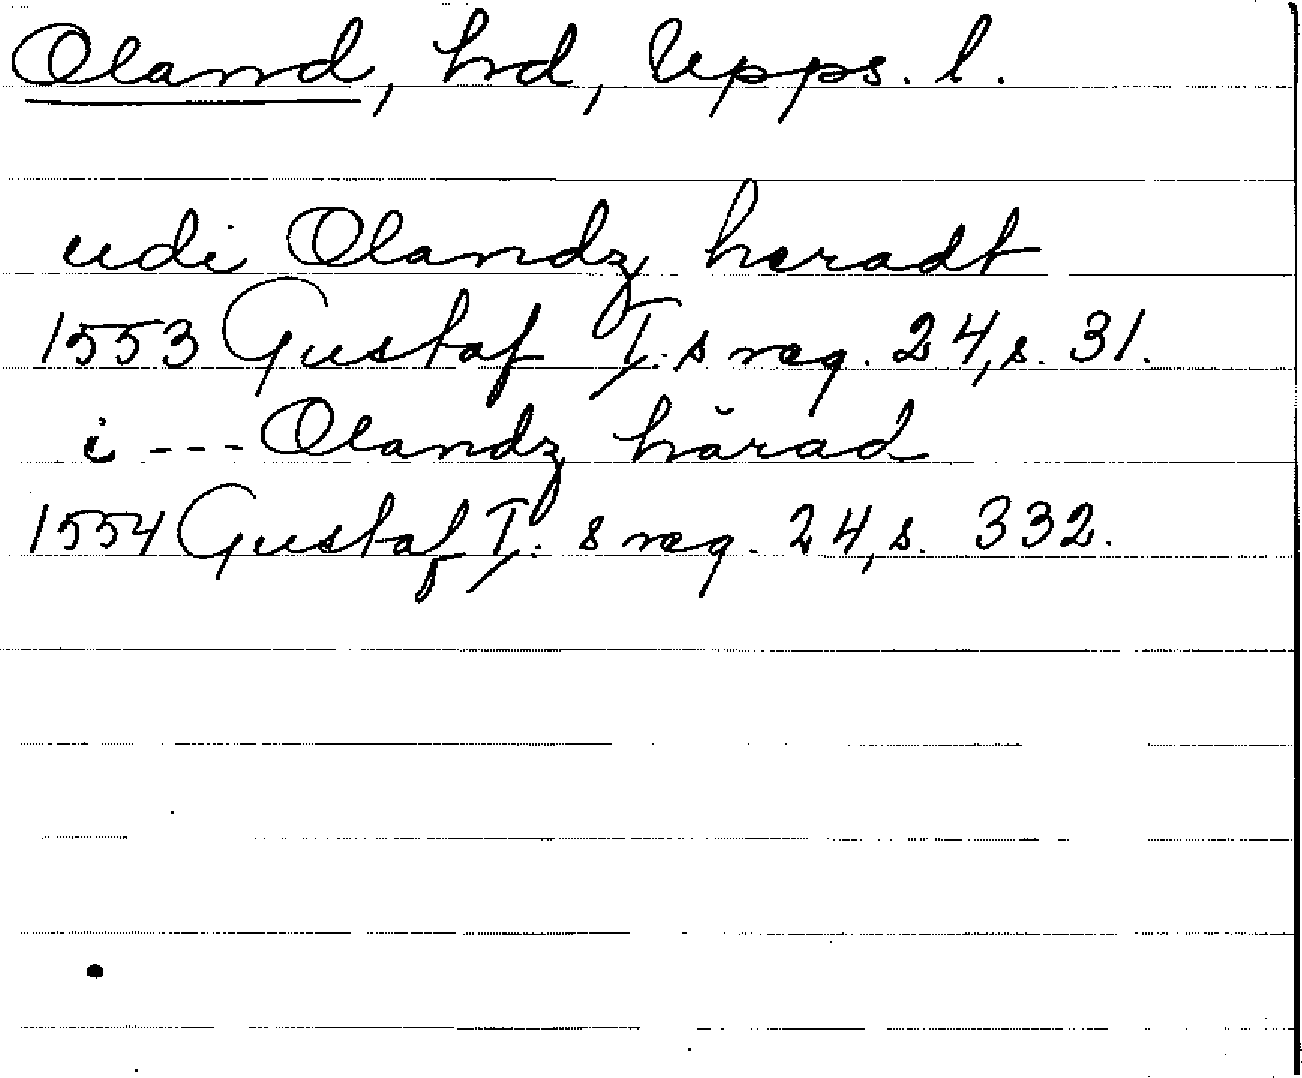 Oland, hd, Upps. l.
udi Olandz heradt
1553 Gustaf I:s reg. 24, s. 31.
i --- Olandz härad
1554 Gustaf I:s reg. 24, s. 332.